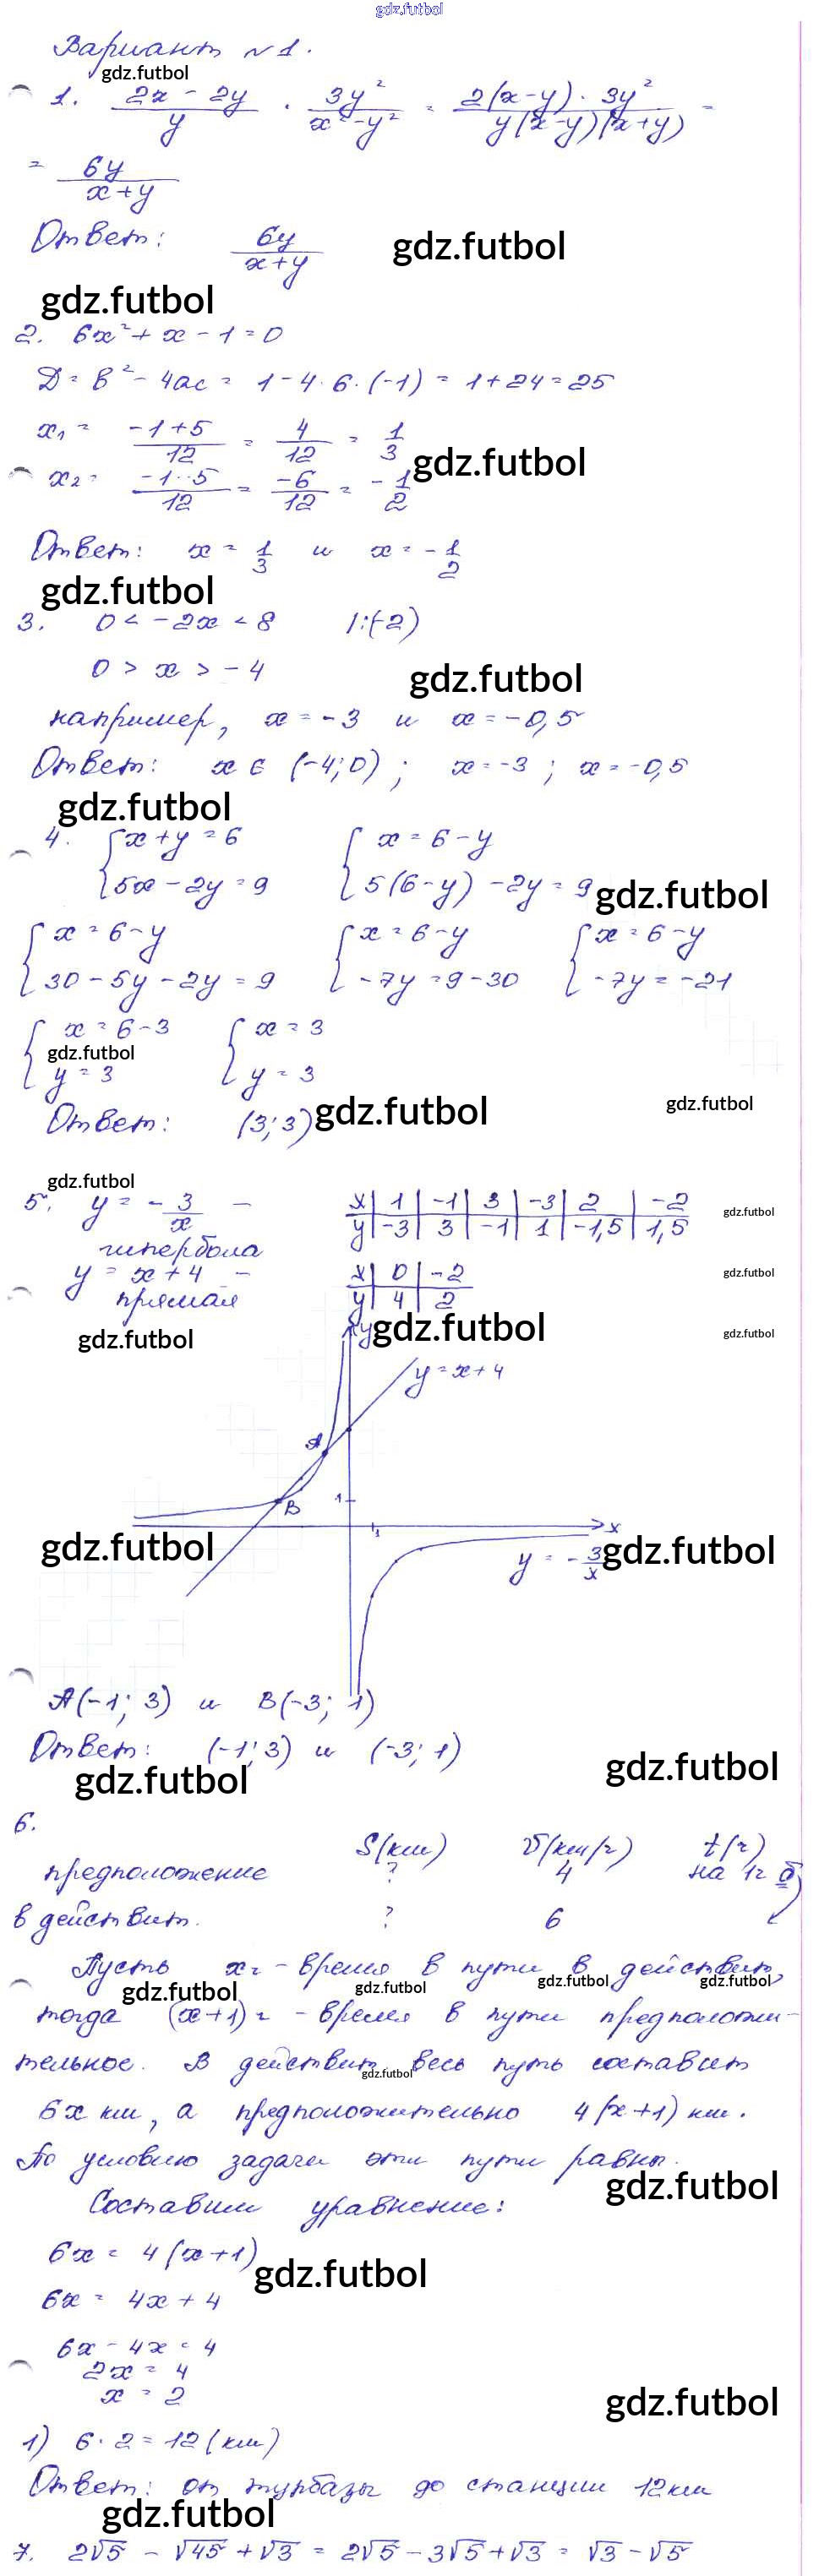 gdz.futbol
Вариант №1.
gdz.futbol
1. (2x - 2y)/y · 3y²/(x² - y²) = (2(x-y) · 3y²)/(y(x-y)(x+y)) =
= 6y/(x+y)
Ответ: 6y/(x+y) gdz.futbol
gdz.futbol
2. 6x² + x - 1 = 0
D = b² - 4ac = 1 - 4·6·(-1) = 1 + 24 = 25
x₁ = (-1+5)/12 = 4/12 = 1/3 gdz.futbol
x₂ = (-1-5)/12 = -6/12 = -1/2
Ответ: x = 1/3 и x = -1/2
gdz.futbol
3. 0 < -2x < 8 |:(-2)
0 > x > -4 gdz.futbol
например, x = -3 и x = -0,5
Ответ: x ∈ (-4; 0); x = -3; x = -0,5
gdz.futbol
4. { x + y = 6 { x = 6 - y
{ 5x - 2y = 9 { 5(6-y) - 2y = 9 gdz.futbol
{ x = 6 - y { x = 6 - y { x = 6 - y
{ 30 - 5y - 2y = 9 { -7y = 9 - 30 { -7y = -21
{ x = 6 - 3 { x = 3
gdz.futbol
{ y = 3 { y = 3
Ответ: (3; 3) gdz.futbol gdz.futbol
gdz.futbol
5. y = -3/x - x | 1 | -1 | 3 | -3 | 2 | -2
гипербола y | -3 | 3 | -1 | 1 | -1,5 | 1,5 gdz.futbol
y = x + 4 - x | 0 | -2 gdz.futbol
прямая y | 4 | 2
gdz.futbol y gdz.futbol gdz.futbol
y = x + 4
A
B 1
1 x
gdz.futbol y = -3/x gdz.futbol
A(-1; 3) и B(-3; 1)
Ответ: (-1; 3) и (-3; 1)
gdz.futbol gdz.futbol
6.
S(км) v(км/ч) t(ч)
предположение ? 4 на 1ч б
в действит. ? 6
Пусть x ч - время в пути в действит,
gdz.futbol gdz.futbol gdz.futbol gdz.futbol
тогда (x+1) ч - время в пути предположи-
тельное. В действит. весь путь составит
gdz.futbol
6x км, а предположительно 4(x+1) км.
По условию задачи эти пути равны.
gdz.futbol
Составим уравнение:
6x = 4(x+1)
gdz.futbol
6x = 4x + 4
6x - 4x = 4
2x = 4
x = 2 gdz.futbol
1) 6 · 2 = 12 (км)
Ответ: от турбазы до станции 12 км
gdz.futbol
7. 2√5 - √45 + √3 = 2√5 - 3√5 + √3 = √3 - √5